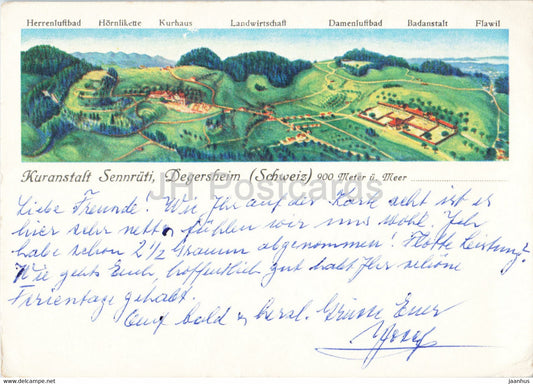 Herrenluftbad Hörnlikette Kurhaus Landwirtschaft Damenluftbad Badanstalt Flawil
Kuranstalt Sennrüti, Degersheim (Schweiz) 900 Meter ü. Meer
JH Postcards
Liebe Freunde! Wie Ihr auf der Karte seht ist es
hier sehr nett & fühlen wir uns wohl. Ich
habe schon 2 1/2 Gramm abgenommen! Flotte Leistung?
Wie gehts Euch, hoffentlich gut habt Ihr schöne
Ferientage gehabt.
Auf bald & herzl. Grüsse Euer
Josef
www.jaanhus.com
jaanhus